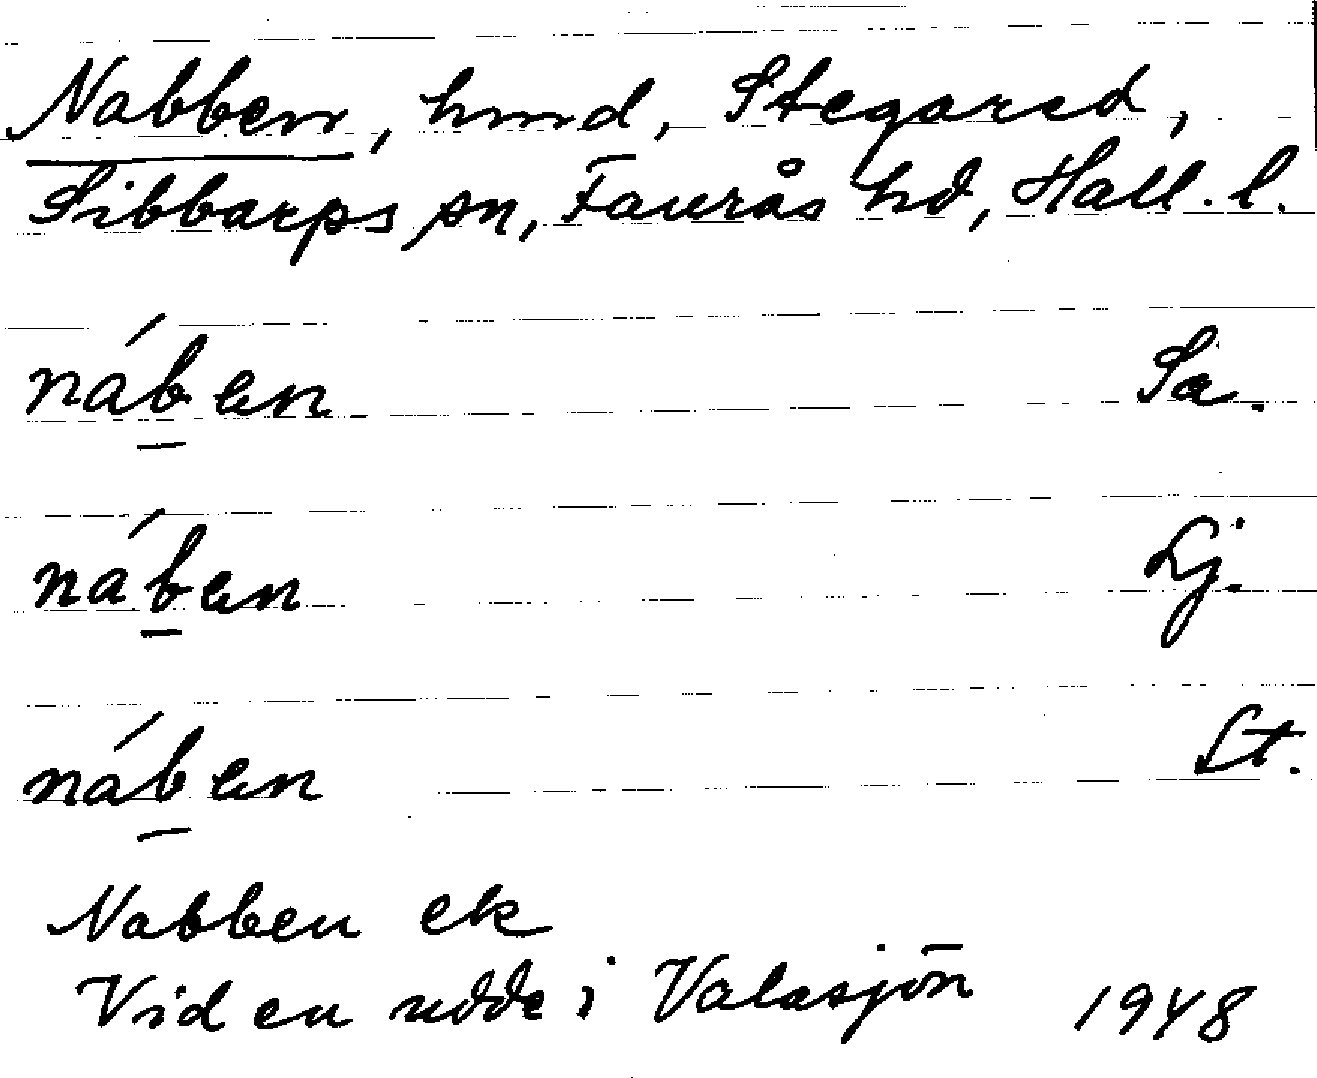 Nabben, hmd, Stegared,
Sibbarps sn, Faurås hd, Hall. l.
náben Sa.
náben Lj.
náben St.
Nabben ek
Vid en udde i Valasjön 1948